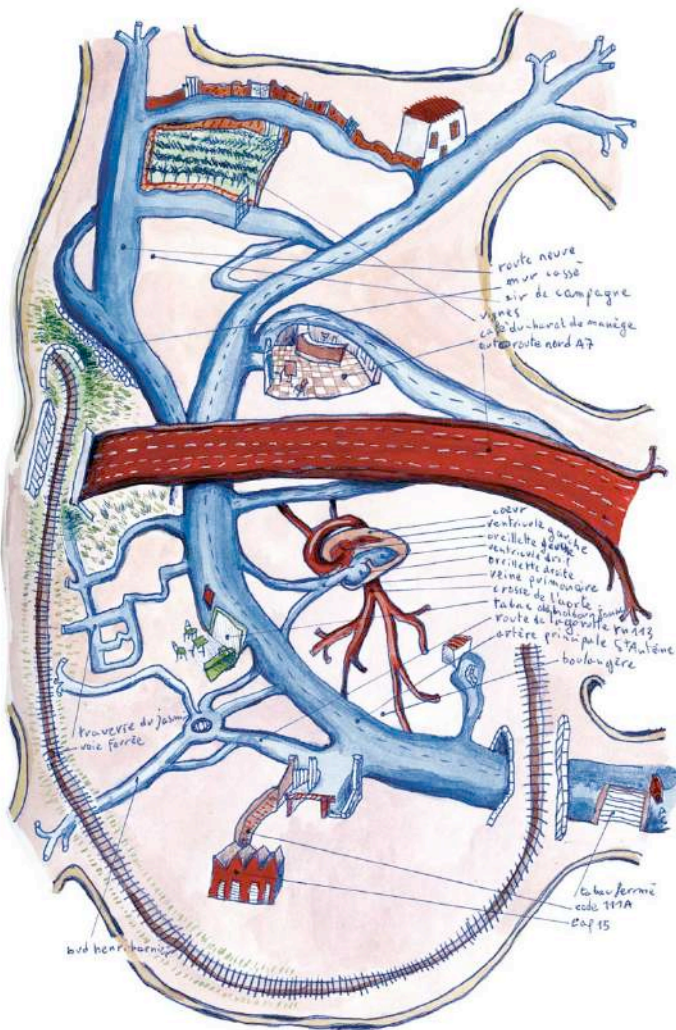 route neuve
mur cassé
air de campagne
vignes
café du cheval de manège
autoroute nord A7
coeur
ventricule gauche
oreillette gauche
ventricule droit
oreillette droite
veine pulmonaire
crosse de l'aorte
tabac
route de la gavotte rn 113
artère principale St Antoine
boulangère
traverse du jasmin
voie ferrée
tabac fermé
code 111A
cap 15
bvd henri barnier